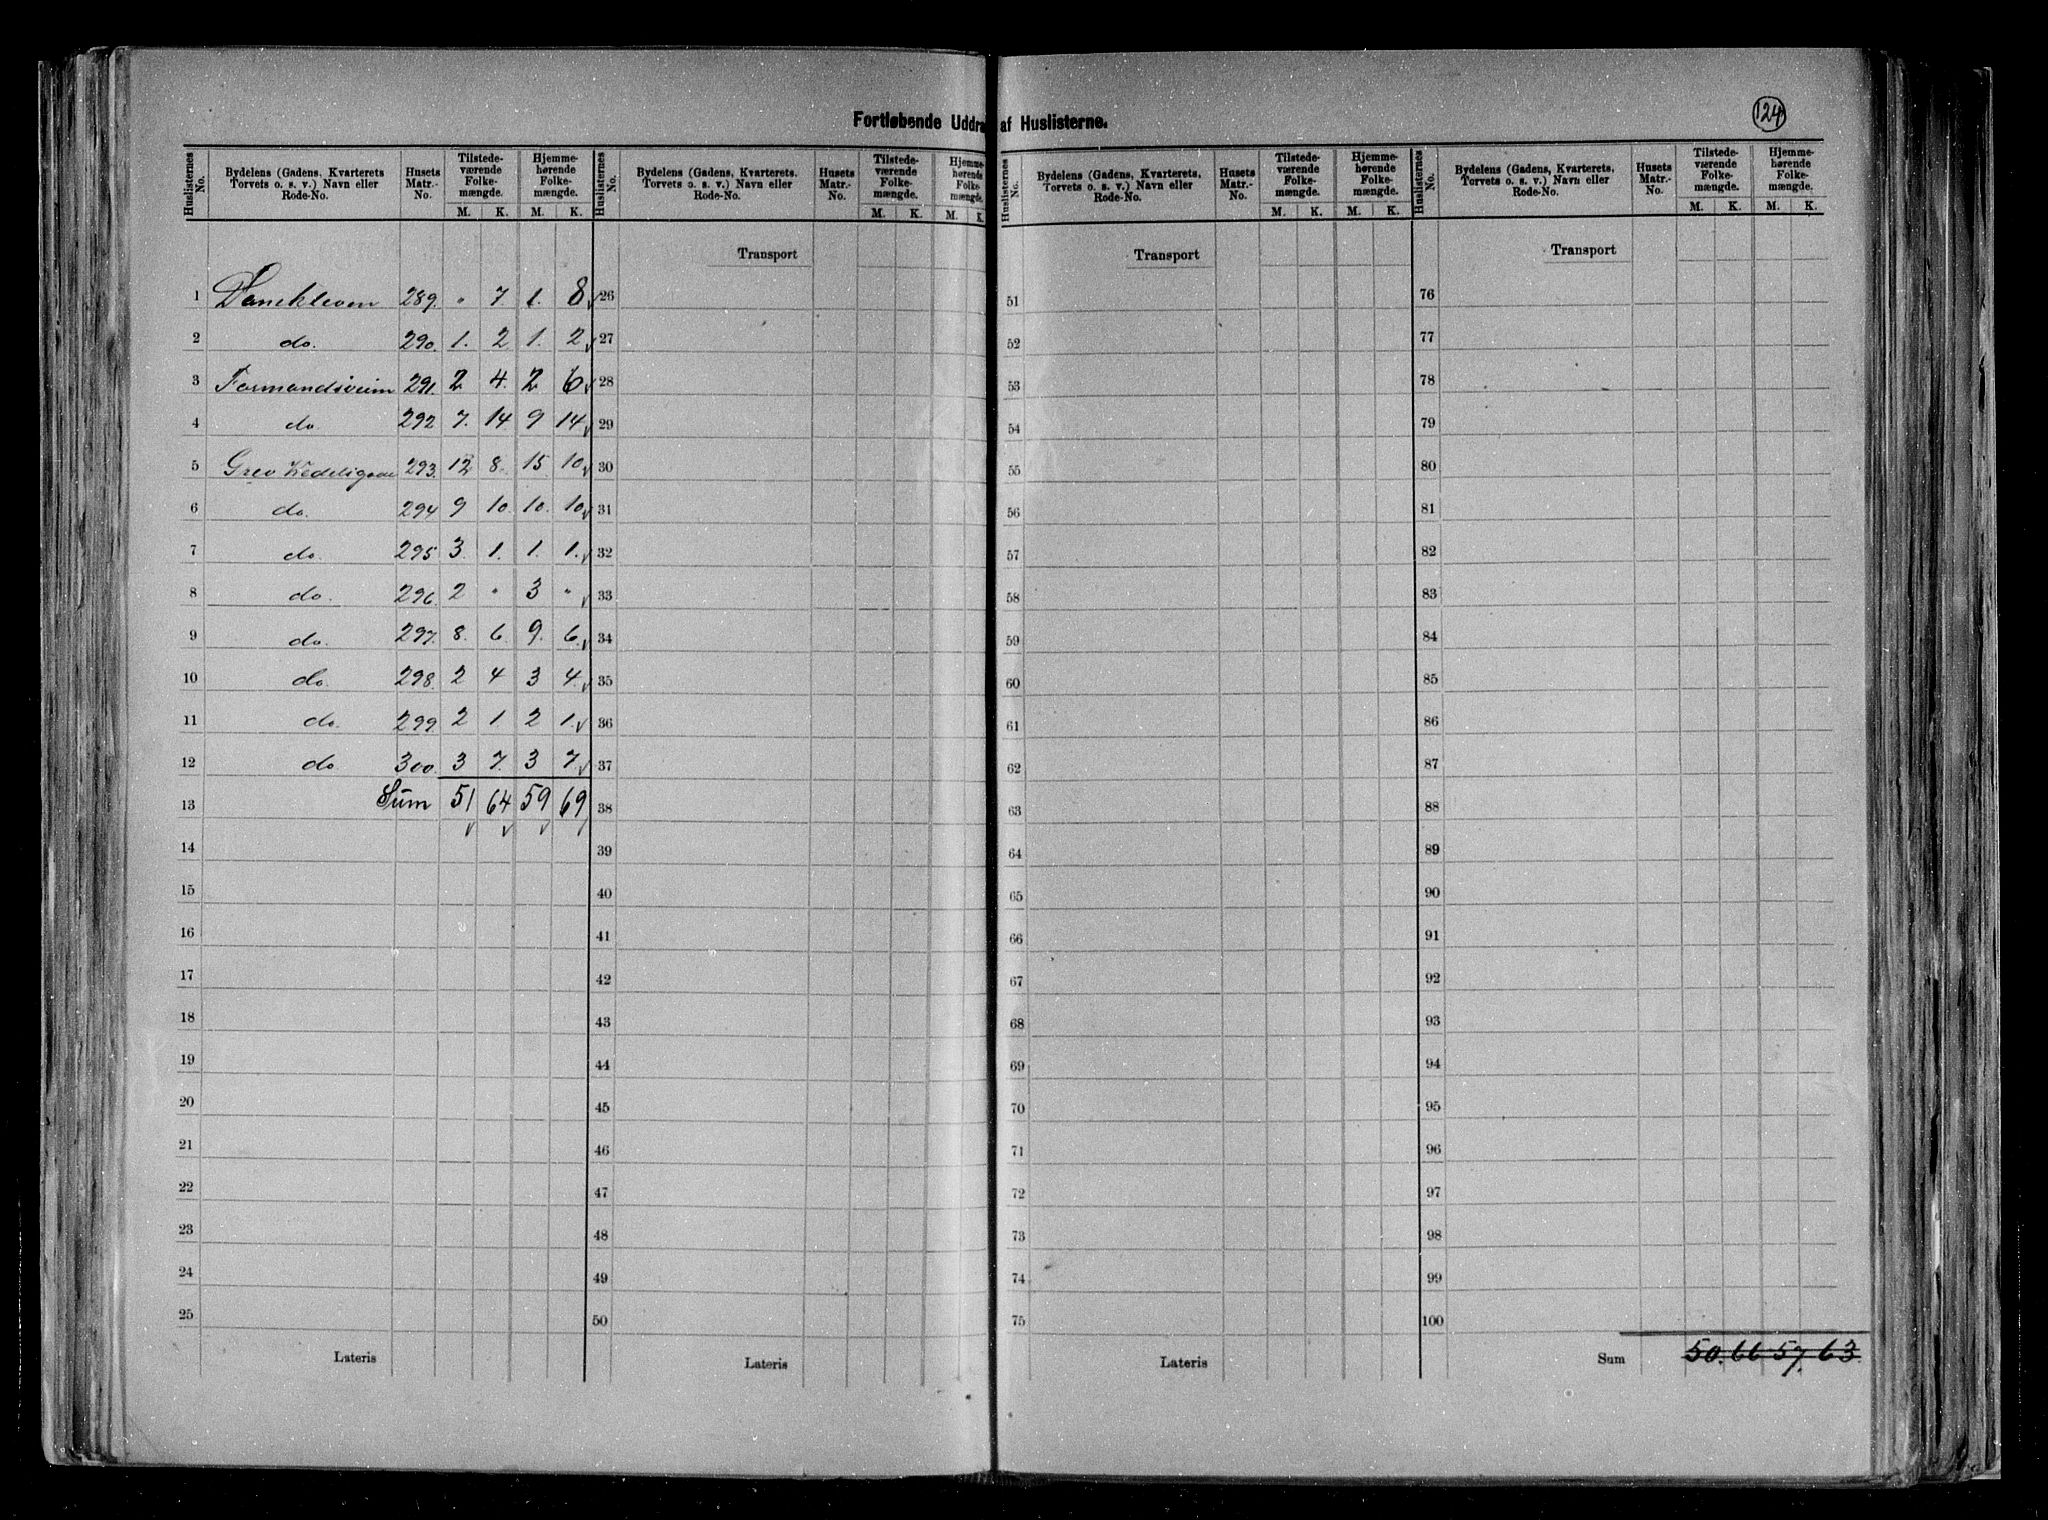 Fortløbende Uddra af Huslisterne.
124
Huslisternes No. | Bydelens (Gadens, Kvarterets, Torvets o. s. v.) Navn eller Rode-No. | Husets Matr.-No. | Tilstedeværende Folkemængde. M. K. | Hjemmehørende Folkemængde. M. K.
Huslisternes No. | Bydelens (Gadens, Kvarterets, Torvets o. s. v.) Navn eller Rode-No. | Husets Matr.-No. | Tilstedeværende Folkemængde. M. K. | Hjemmehørende Folkemængde. M. K.
Huslisternes No. | Bydelens (Gadens, Kvarterets, Torvets o. s. v.) Navn eller Rode-No. | Husets Matr.-No. | Tilstedeværende Folkemængde. M. K. | Hjemmehørende Folkemængde. M. K.
Huslisternes No. | Bydelens (Gadens, Kvarterets, Torvets o. s. v.) Navn eller Rode-No. | Husets Matr.-No. | Tilstedeværende Folkemængde. M. K. | Hjemmehørende Folkemængde. M. K.
Transport Transport Transport
1 Danekleven 289. " 7. 1. 8 26 51 76
2 do. 290. 1. 2 1. 2 27 52 77
3 Formandsveien 291. 2 4. 2 6 28 53 78
4 do 292 7. 14 9 14 29 54 79
5 Grev Wedelsgade 293. 12 8. 15. 10 30 55 80
6 do. 294 9 10. 10. 10 31 56 81
7 do. 295 3. 1. 1. 1. 32 57 82
8 do. 296. 2 " 3 " 33 58 83
9 do. 297. 8. 6. 9. 6. 34 59 84
10 do. 298. 2 4 3 4 35 60 85
11 do. 299. 2 1 2 1. 36 61 86
12 do. 300. 3 7. 3 7 37 62 87
13 Sum 51 64 59 69 38 63 88
14 39 64 89
15 40 65 90
16 41 66 91
17 42 67 92
18 43 68 93
19 44 69 94
20 45 70 95
21 46 71 96
22 47 72 97
23 48 73 98
24 49 74 99
25 50 75 100
Lateris Lateris Lateris Sum 50. 66 57. 63.